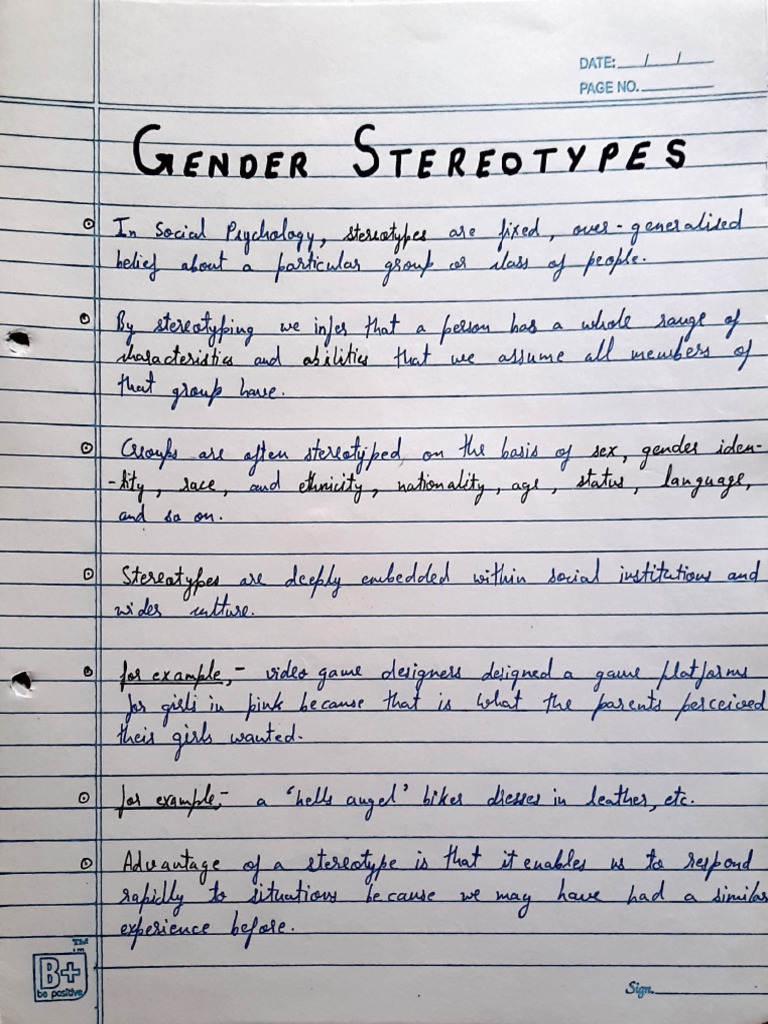 DATE: / /
PAGE NO.
GENDER STEREOTYPES
In Social Psychology, stereotypes are fixed, over-generalised
belief about a particular group or class of people.
By stereotyping we infer that a person has a whole range of
characteristics and abilities that we assume all members of
that group have.
Groups are often stereotyped on the basis of sex, gender iden-
-tity, race, and ethnicity, nationality, age, status, language,
and so on.
Stereotypes are deeply embedded within social institutions and
wider culture.
for example,- video game designers designed a game platforms
for girls in pink because that is what the parents perceived
their girls wanted.
for example,- a 'hells angel' biker dresses in leather, etc.
Advantage of a stereotype is that it enables us to respond
rapidly to situations because we may have had a similar
experience before.
B+
be positive
Sign.